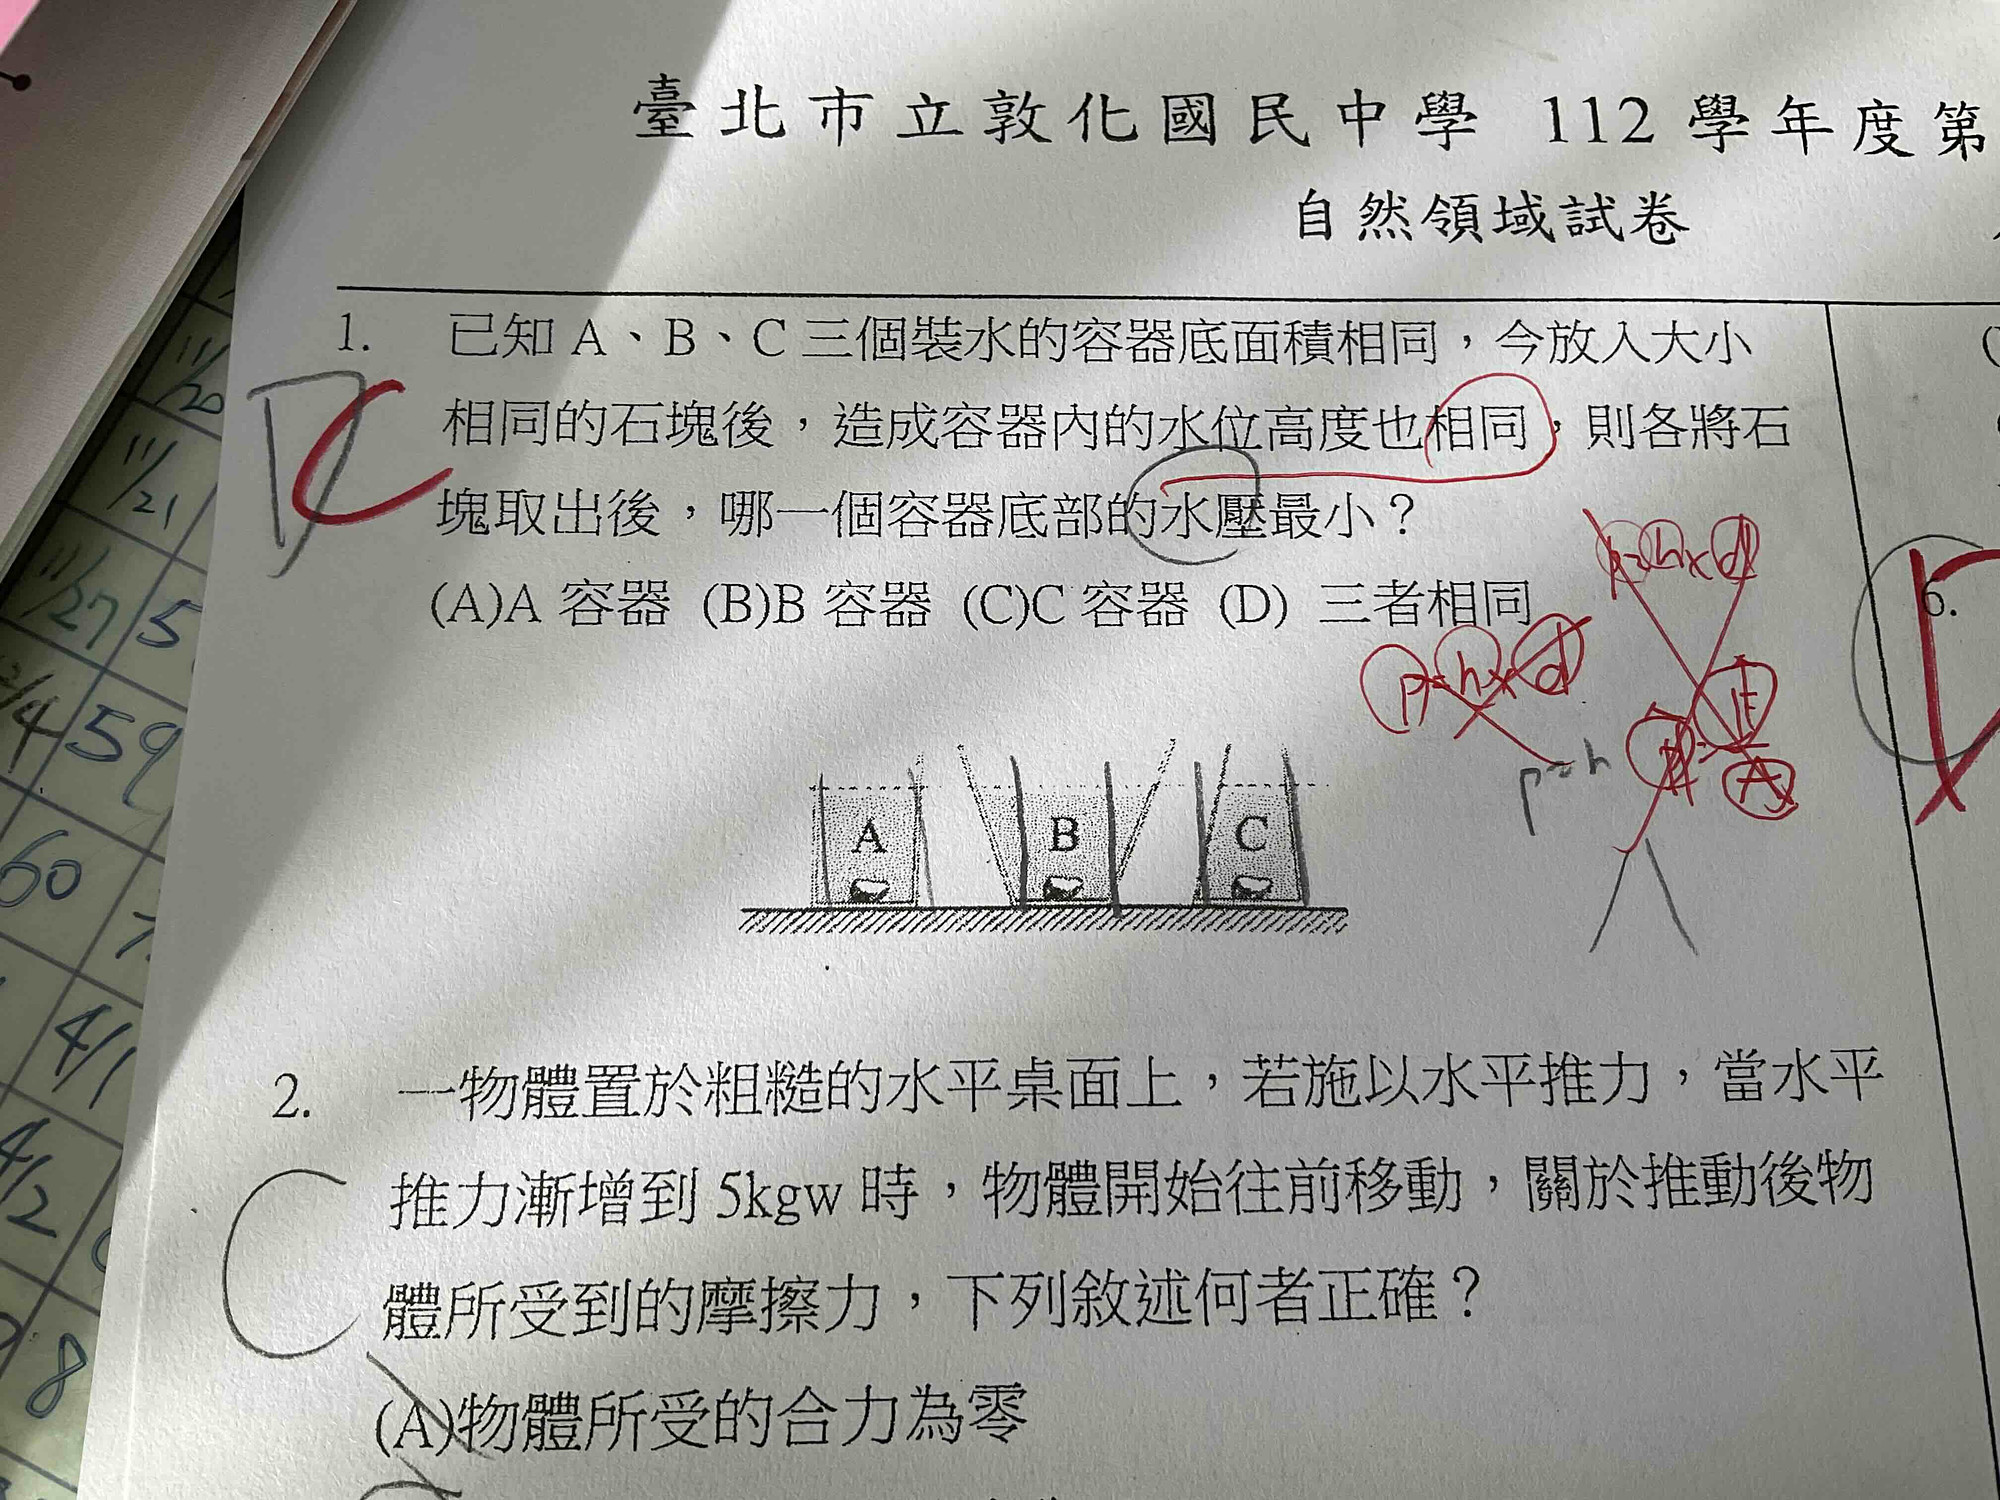 臺北市立敦化國民中學 112 學年度第
自然領域試卷
1. 已知 A、B、C 三個裝水的容器底面積相同，今放入大小
相同的石塊後，造成容器內的水位高度也相同，則各將石
塊取出後，哪一個容器底部的水壓最小？
(A)A 容器 (B)B 容器 (C)C 容器 (D) 三者相同
D C
P=h×d
P=h×d
P=h
P=F/A
A B C
2. 一物體置於粗糙的水平桌面上，若施以水平推力，當水平
推力漸增到 5kgw 時，物體開始往前移動，關於推動後物
體所受到的摩擦力，下列敘述何者正確？
C
(A)物體所受的合力為零
6.
11/20
11/21
11/27 5
4 59
60
4/1
4/2
8